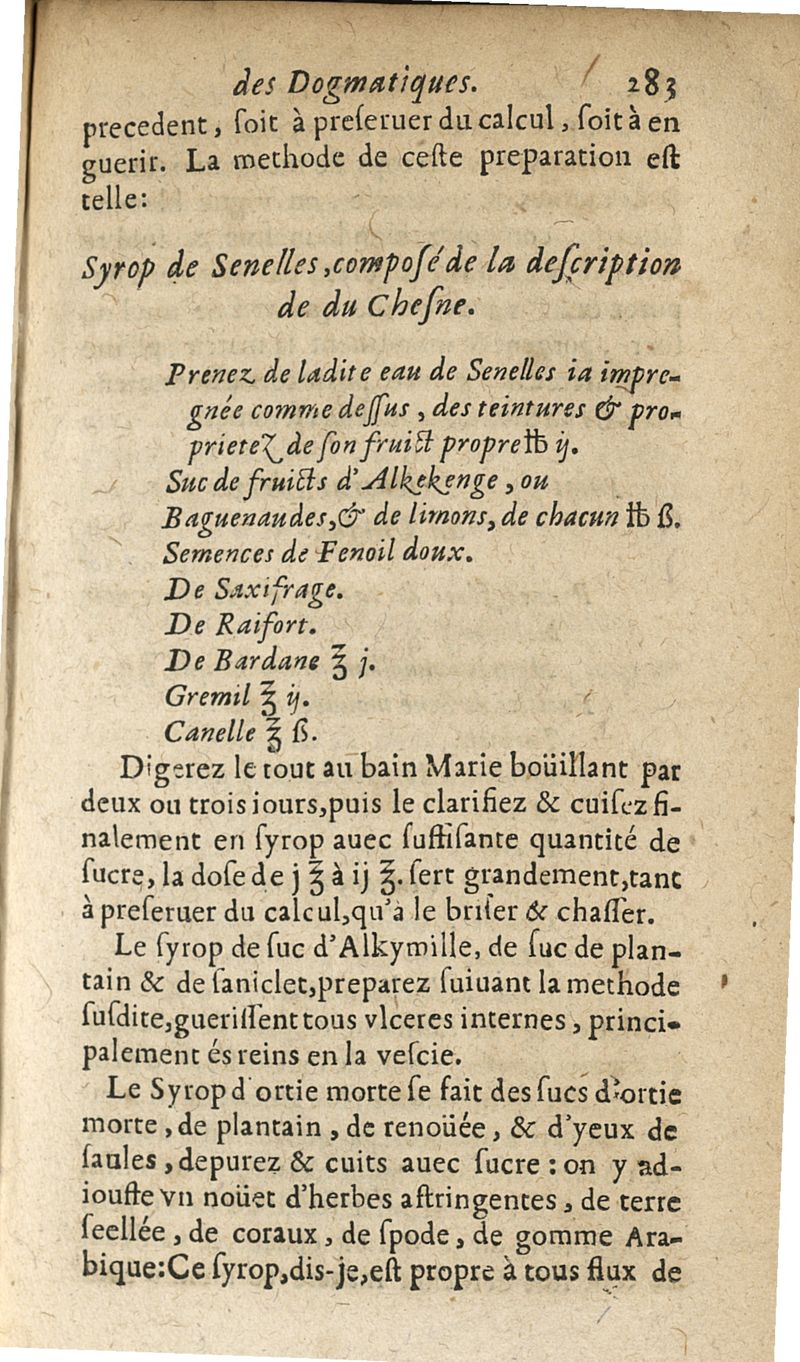 des Dogmatiques. 283
precedent, ſoit à preſeruer du calcul, ſoit à en
guerir. La methode de ceſte preparation eſt
telle:
Syrop de Senelles, compoſé de la deſcription
de du Cheſne.
Prenez de ladite eau de Senelles ia impre-
gnée comme deſſus, des teintures & pro-
prietez de ſon fruict propre ℔ ij.
Suc de fruicts d'Alkekenge, ou
Baguenaudes, & de limons, de chacun ℔ ß.
Semences de Fenoil doux.
De Saxifrage.
De Raifort.
De Bardane ℥ j.
Gremil ℥ ij.
Canelle ℥ ß.
Digerez le tout au bain Marie boüillant par
deux ou trois iours, puis le clarifiez & cuiſez fi-
nalement en ſyrop auec ſuffiſante quantité de
ſucre, la doſe de j ℥ à ij ℥. ſert grandement, tant
à preſeruer du calcul, qu'à le briſer & chaſſer.
Le ſyrop de ſuc d'Alkymille, de ſuc de plan-
tain & de ſaniclet, preparez ſuiuant la methode
ſuſdite, gueriſſent tous vlceres internes, princi-
palement és reins en la veſcie.
Le Syrop d'ortie morte ſe fait des ſucs d'ortie
morte, de plantain, de renoüée, & d'yeux de
ſaules, depurez & cuits auec ſucre: on y ad-
iouſte vn noüet d'herbes aſtringentes, de terre
ſeellée, de coraux, de ſpode, de gomme Ara-
bique: Ce ſyrop, dis-je, eſt propre à tous flux de